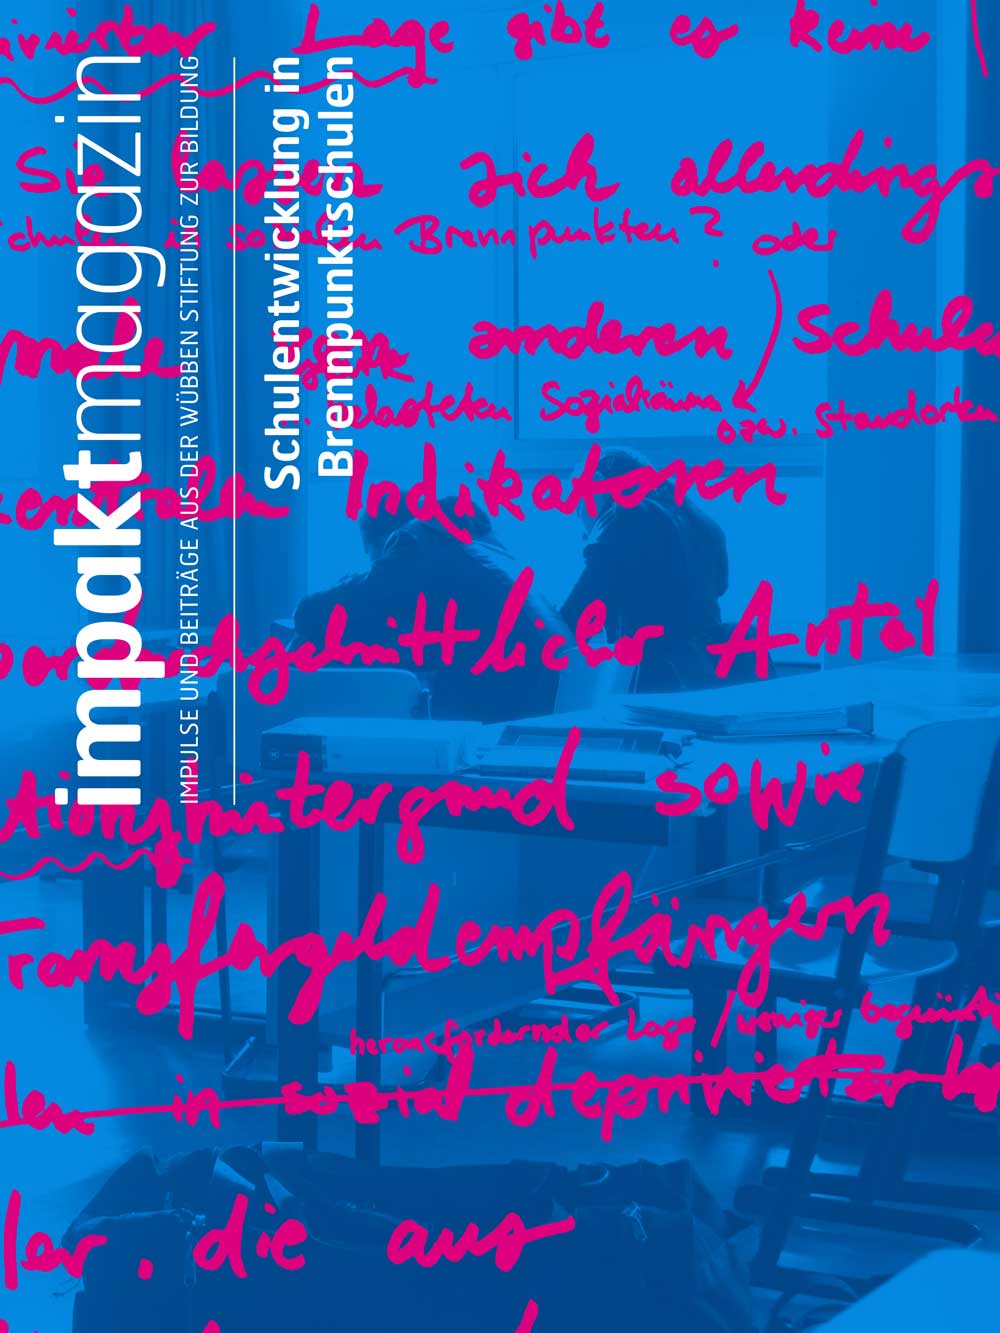 impaktmagazin
IMPULSE UND BEITRÄGE AUS DER WÜBBEN STIFTUNG ZUR BILDUNG
Schulentwicklung in
Brennpunktschulen
Lage gibt es keine
sich allerdings
Brennpunkten? oder
anderen Schule
belasteten Sozialräumen
bzw. Standorten
zentralen Indikatoren
Anteil
sowie
Transfergeldempfängern
herausfordernder Lage / weniger
len in sozial deprivierter
ler, die aus